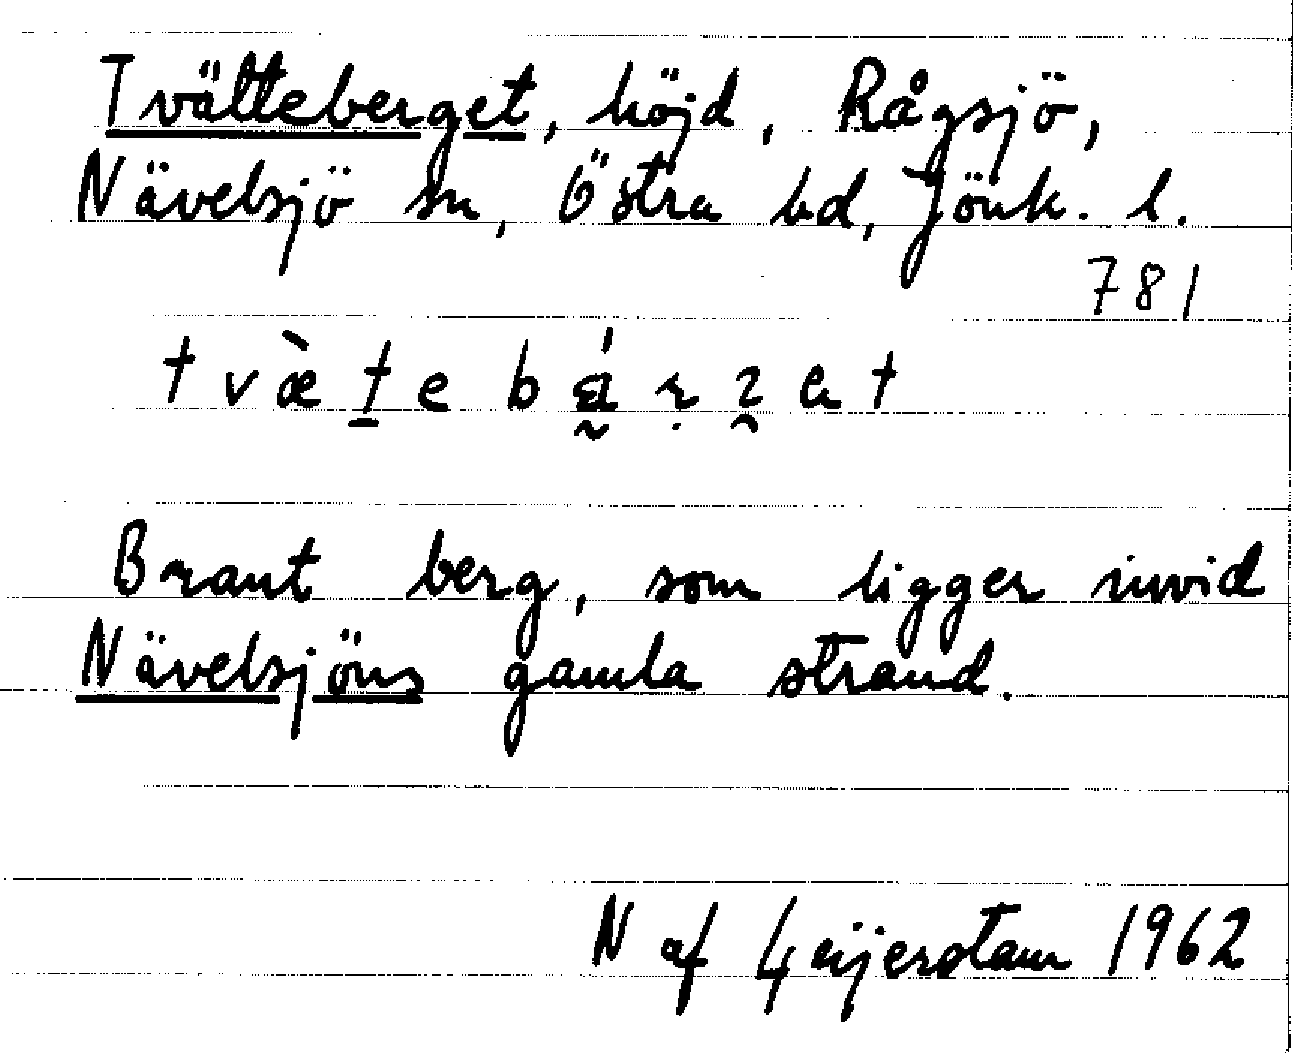 Tvälteberget, höjd, Rågsjö,
Nävelsjö sn, Östra hd, Jönk. l.
781
Brant berg, som ligger invid
Nävelsjöns gamla strand.
N af Geijerstam 1962